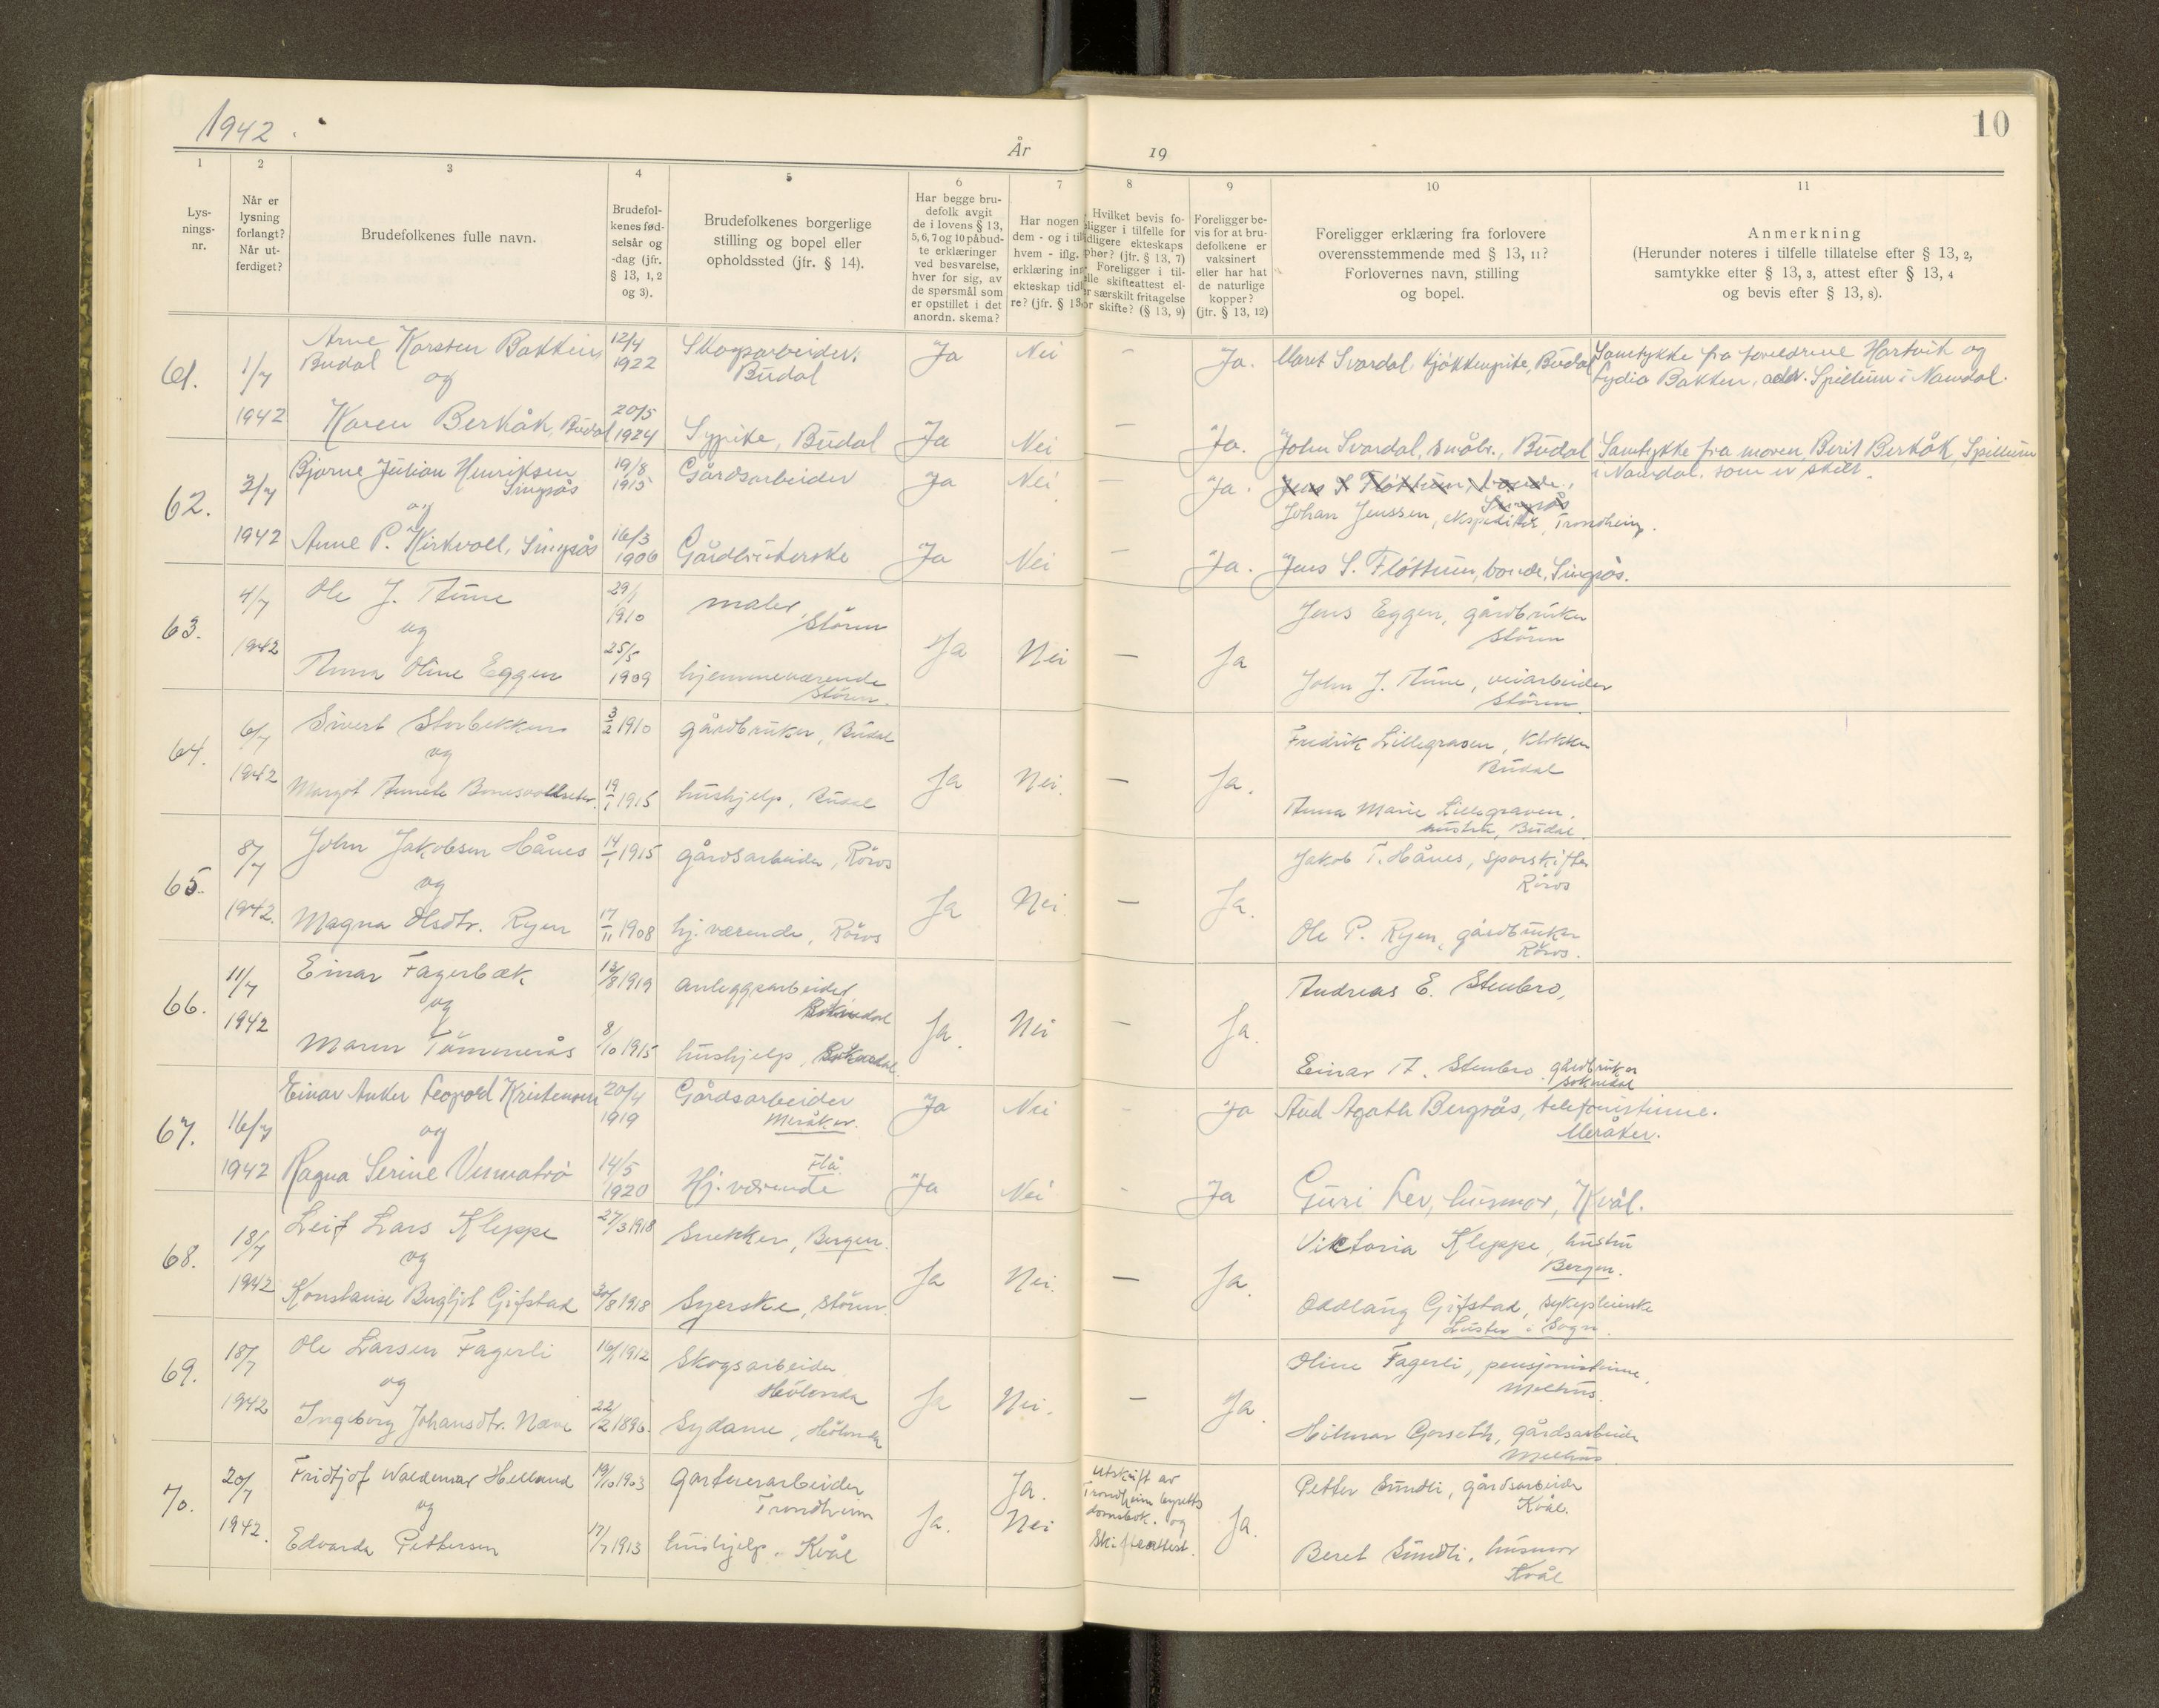 1942.
År
19
10
1
2
3
4
5
6
7
8
9
10
11
Lys-
nings-
nr.
Når er
lysning
forlangt?
Når ut-
ferdiget?
Brudefolkenes fulle navn.
Brudefol-
kenes fød-
selsår og
-dag (jfr.
§ 13, 1, 2
og 3).
Brudefolkenes borgerlige
stilling og bopel eller
opholdssted (jfr. § 14).
Har begge bru-
defolk avgit
de i lovens § 13,
5, 6, 7 og 10 påbud-
te erklæringer
ved besvarelse,
hver for sig, av
de spørsmål som
er opstillet i det
anordn. skema?
Har nogen
dem - og i til
hvem - iflg.
erklæring inn
ekteskap tid
re? (jfr. § 13
Hvilket bevis fo-
eligger i tilfelle for
idligere ekteskaps
phør? (jfr. § 13, 7)
Foreligger i til-
lle skifteattest el-
r særskilt fritagelse
or skifte? (§ 13, 9)
Foreligger be-
vis for at bru-
defolkene er
vaksinert
eller har hat
de naturlige
kopper?
(jfr. § 13, 12)
Foreligger erklæring fra forlovere
overensstemmende med § 13, 11?
Forlovernes navn, stilling
og bopel.
Anmerkning
(Herunder noteres i tilfelle tillatelse efter § 13, 2,
samtykke etter § 13, 3, attest efter § 13, 4
og bevis efter § 13, 8).
61.
1/7
1942
Arne Karsten Bakken,
Budal
og
Karen Berkåk, Budal
12/4
1922
20/5
1924
Skogsarbeider.
Budal
Sypike, Budal
Ja
Ja
Nei
Nei
–
–
Ja.
Ja.
Maret Svardal, kjøkkenpike, Budal
John Svardal, småbr., Budal
Samtykke fra foreldrene Hartvik og
Lydia Bakken, adr. Spillum i Namdal.
Samtykke fra moren, Berit Berkåk, Spillum
i Namdal. som er skilt.
62.
2/7
1942
Bjarne Julian Henriksen
Singsås
og
Anne P. Kirkvoll, Singsås
19/8
1915
16/3
1906
Gårdsarbeider
Gårdbrukerske
Ja
Ja
Nei
Nei
–
–
Ja.
Ja.
Jens S. Fløttum, bonde,
Singsås
Johan Jenssen, ekspeditør, Trondheim.
Jens S. Fløttum, bonde, Singsås.
63.
4/7
1942
Ole J. Aune
og
Anna Oline Eggen
29/1
1910
25/5
1909
maler,
Støren
hjemmeværende
Støren.
Ja
Nei
–
Ja
Jens Eggen, gårdbruker
Støren
John J. Aune, veiarbeider
Støren.
64.
6/7
1942
Sivert Storbekken
og
Margot Annete Bonesvollseter.
3/2 1910
19/1 1915
gårdbruker, Budal
hushjelp, Budal
Ja
Nei.
–
Ja.
Fredrik Lillegraven, klokker
Budal
Anna Marie Lillegraven,
hustru, Budal.
65.
8/7
1942.
John Jakobsen Hånes
og
Magna Olsdtr. Ryen
14/1 1915
17/11 1908
gårdsarbeider, Röros
hj. værende, Röros
Ja
Nei.
–
Ja.
Jakob T. Hånes, sporskifter
Röros
Ole P. Ryen, gårdbruker
Röros.
66.
11/7
1942
Einar Fagerbæk
og
Maren Tömmerås
13/8 1919
8/10 1915
anleggsarbeider
Soknedal
hushjelp, Soknedal.
Ja.
Nei
–
Ja.
Andreas E. Stenbro,
Einar A. Stenbro, gårdbruker
Soknedal
67.
16/7
1942
Einar Anker Leopold Kristensen
og
Ragna Serine
20/4
1919
14/5
1920
Gårdsarbeider
Meråker.
Flå.
Hj. værende
Ja
Ja
Nei
Nei
–
–
Ja
Ja
Aud Agathe Bergsås, telefonistinne.
Meråker.
Guri Ler, husmor, Kvål.
68.
18/7
1942
Leif Lars Kleppe
og
Konstanse Bergljot Gifstad
27/3 1918
30/8 1918
Snekker, Bergen.
Syerske, Støren.
Ja
Nei.
–
Ja.
Viktoria Kleppe, hustru
Bergen.
Oddlaug Gifstad, sykepleierske
Luster i Sogn.
69.
18/7
1942
Ole Larsen Fagerli
og
Ingeborg Johansdtr. Næve
16/1 1912
22/2 1896.
Skogsarbeider
Hölonda
Sydame, Hölonda
Ja
Nei.
–
Ja.
Oline Fagerli, pensjonistinne,
Melhus.
Hilmar Gorseth, gårdsarbeider
Melhus
70.
20/7
1942.
Fridtjof Waldemar Helland
og
Edvarda Pettersen
19/10 1903
17/7 1913
Gartnerarbeider
Trondheim
hushjelp. Kvål
Ja.
Ja.
Nei
Utskrift av
Trondheim byretts
domsbok. og
Skifteattest.
Ja.
Petter Sundli, gårdsarbeider
Kvål.
Beret Sundli, husmor
Kvål